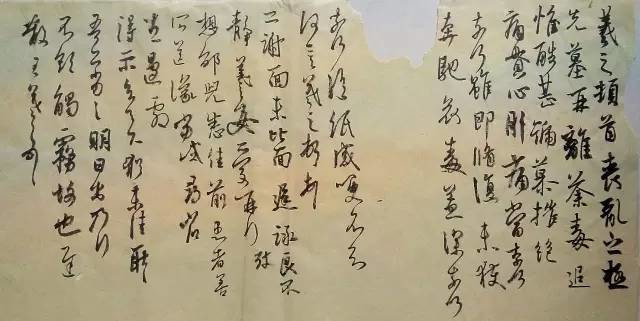 羲之頓首喪亂之極
先墓再離荼毒追
惟酷甚號慕摧絕
痛貫心肝痛當奈何
奈何雖即脩復未獲
奔馳哀毒益深奈何
奈何臨紙感哽不知
何言羲之頓首頓首
二謝面未比面遲詠良不
靜羲之女愛再拜
想邵兒悉佳前患者善
所送議當試尋省
左邊劇
得示知足下猶未佳耿
吾亦劣劣明日出乃行
不欲觸霧故也遲
散王羲之頓首